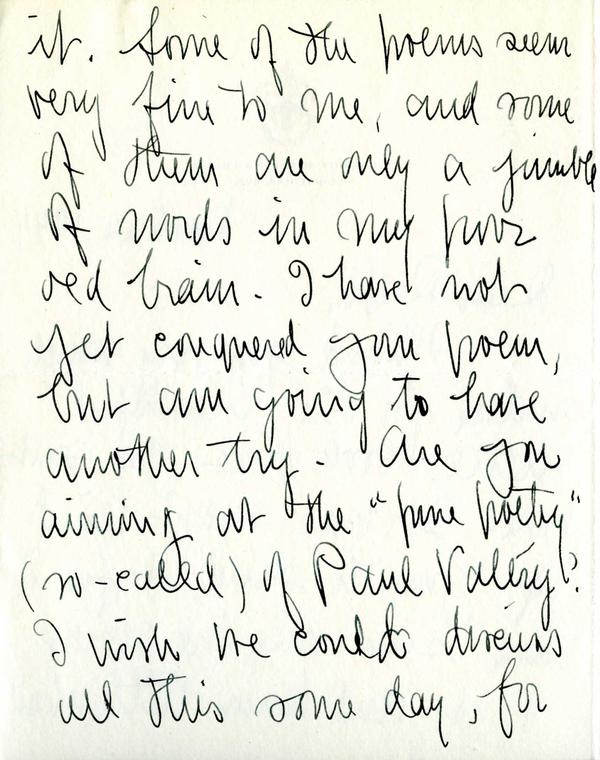 it. Some of the poems seem
very fine to me, and some
of them are only a jumble
of words in my poor
old brain. I have not
yet conquered your poem,
but am going to have
another try. Are you
aiming at the "pure poetry"
(so-called) of Paul Valéry?
I wish we could discuss
all this some day, for